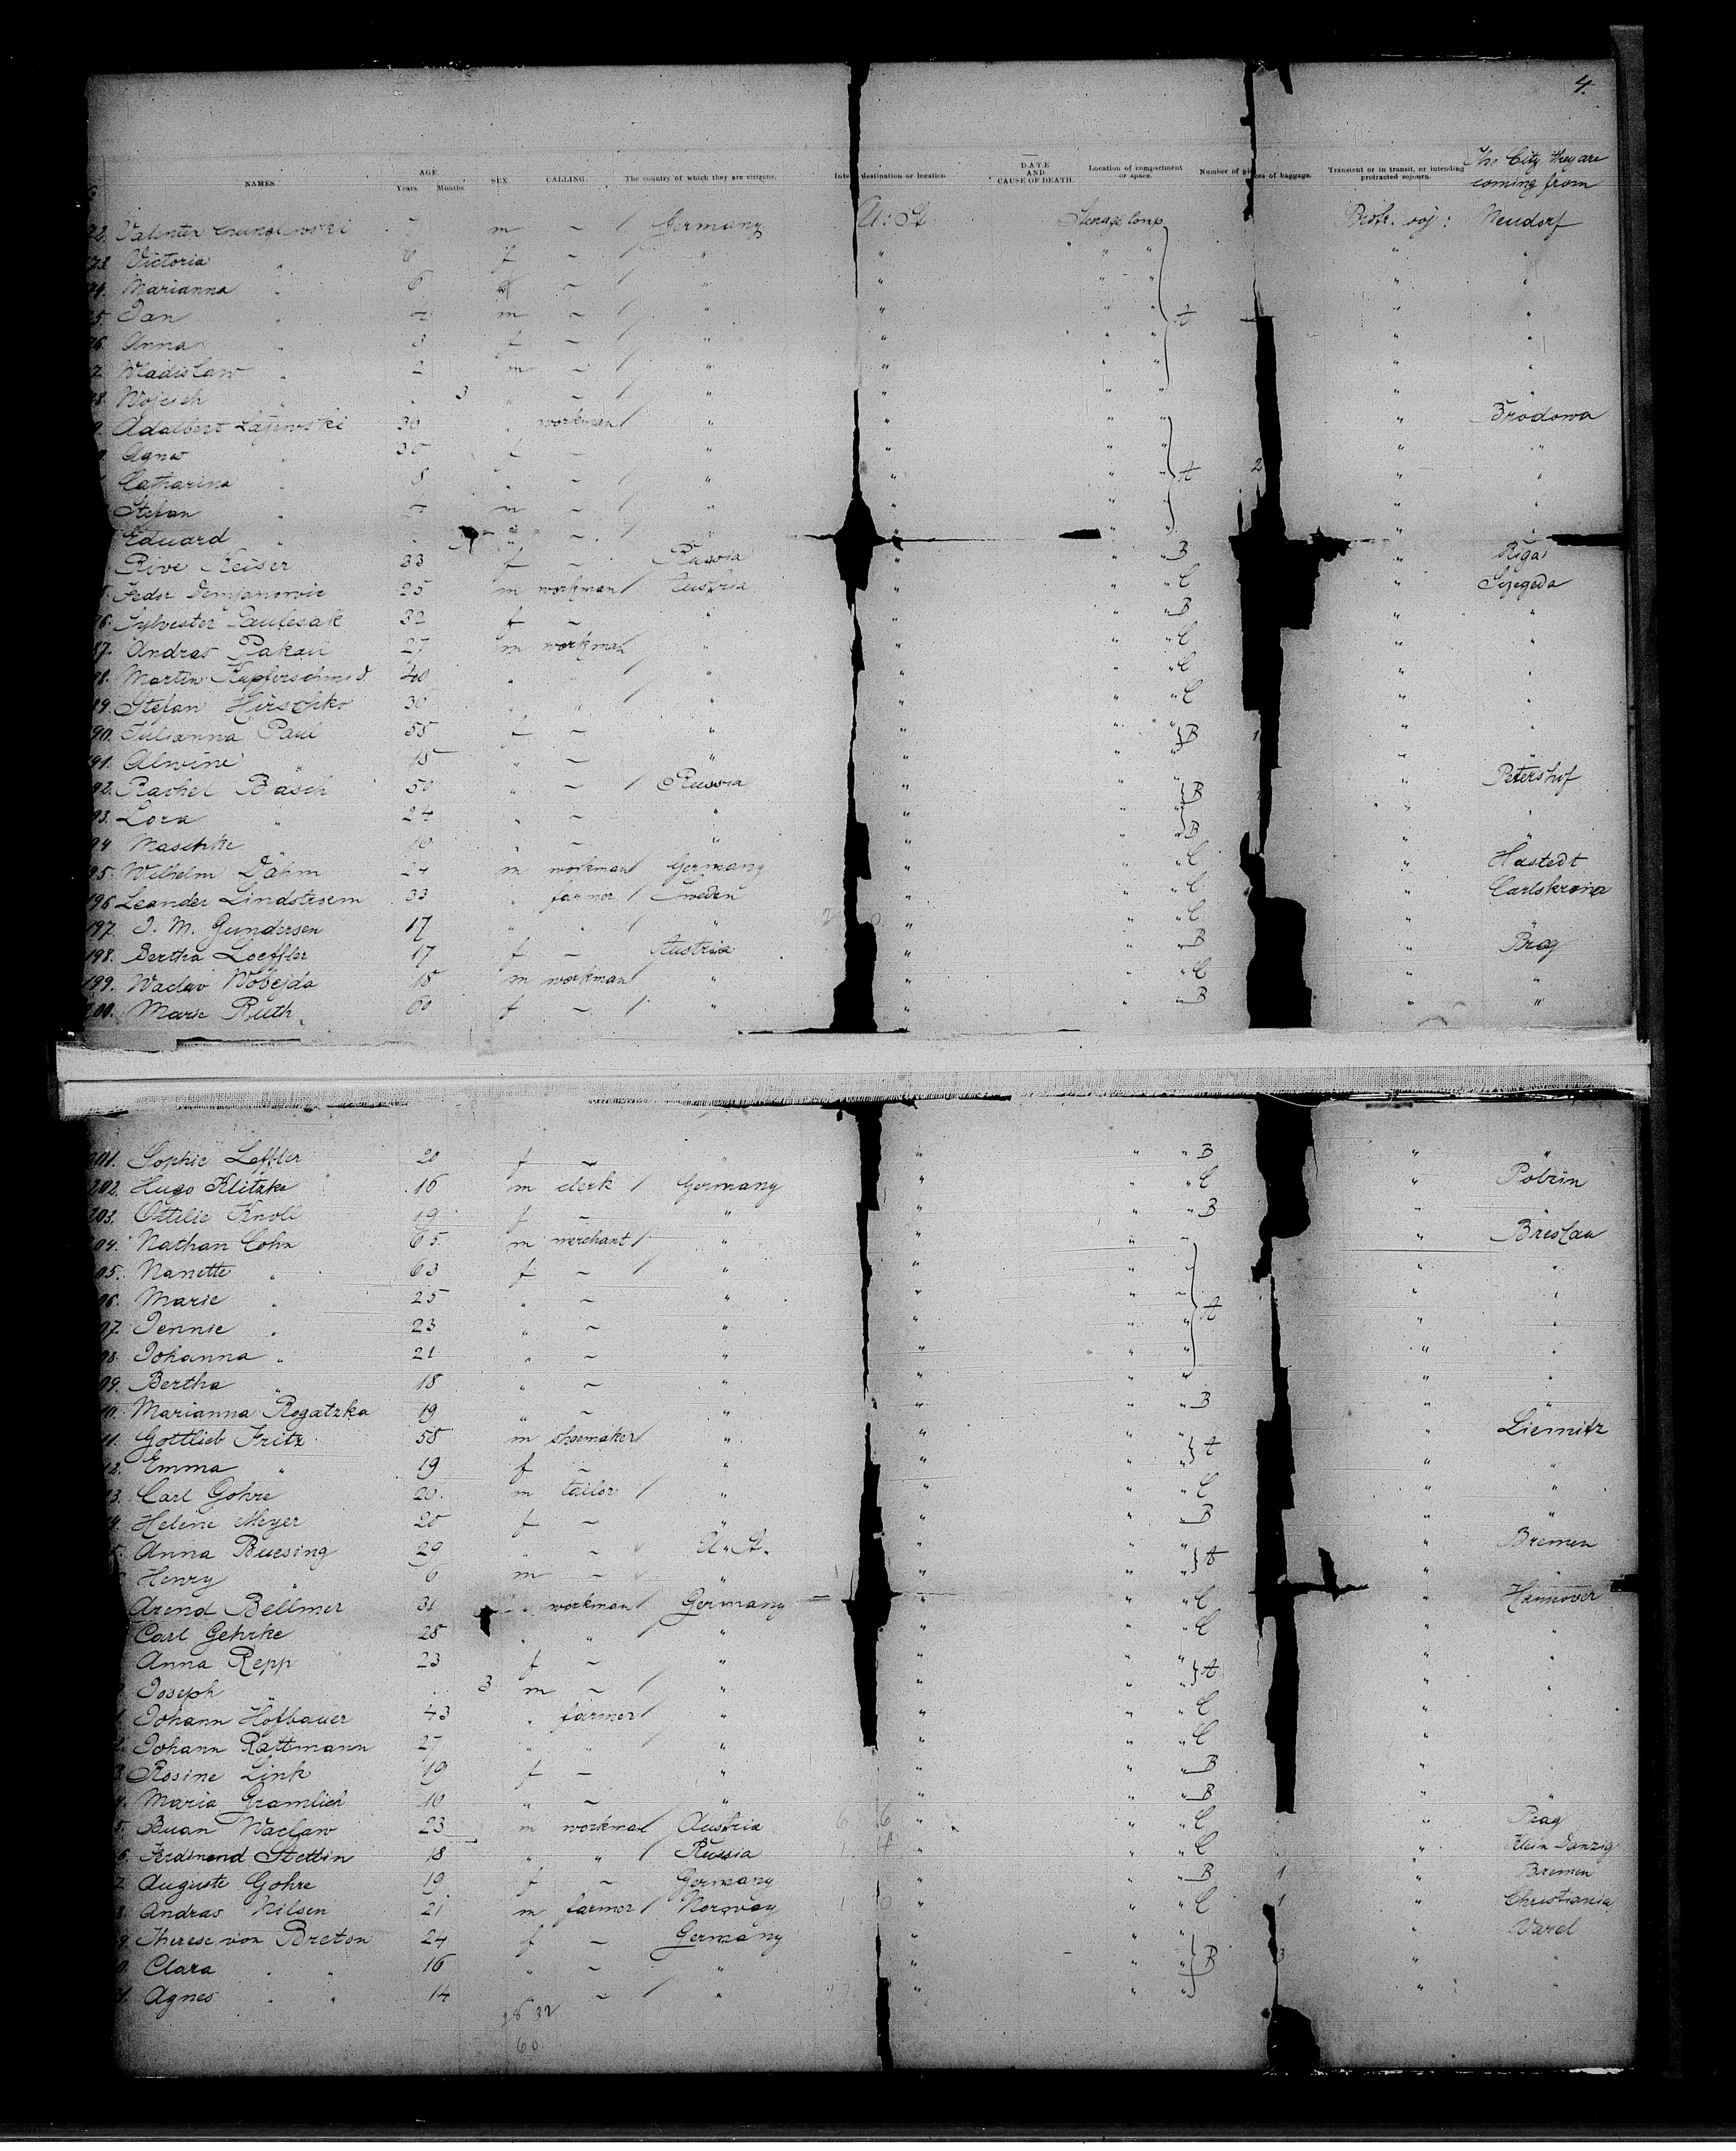 4.
NAMES AGE Years. Months. SEX. CALLING. The country of which they are citizens. destination or location. DATE AND CAUSE OF DEATH. Location of compartment or space. Number of pieces of baggage. Transient or in transit, or intending protracted sojourn. The City they are coming from
Valentin m ~ Germany U: St. Steerage Comp Protr. soj: Neudorf
Victoria " f ~ " " " " " "
Marianna " 6 ~ " " " " " "
Jan " m ~ " " " " A " "
Anna " 3 f ~ " " " " " "
Wladislaw " 2 m ~ " " " " " "
Wojcich " 3 " ~ " " " " " "
Adalbert Lajewski 36 " workman " " " " " Brodowa
Agnes " 35 f ~ " " " " " "
Catharina " 8 " ~ " " " " A 2 " "
Stefan " m ~ " " " " " "
Eduard " " ~ " " " " " "
Rive Keiser 33 f ~ Russia " " " B " Riga
Fedor 25 m workman Austria " " " C " Szegeda
86. Sylvester 32 f ~ " " " " B " "
87. Andras Pakan 27 m workman " " " " C " "
88. Martin Kupferschmid 40 " " " " " " C " "
89. Stefan Hirschko 36 " " " " " " C " "
90. Julianna Paul 55 f ~ " " " " B 1 " "
91. Alwine " 15 " ~ " " " " " "
92. Rachel Basch 50 " ~ Russia " " " B " Petershof
93. Lora " 24 " ~ " " " " " "
94. Maschke " 10 " ~ " " " " B " "
95. Wilhelm Dähm 24 m workman Germany " " " C " Hastedt
196 Leander Lindstrom 33 " farmer Sweden " " " C " Carlskrona
197. J. M. Gundersen 17 " " " " " " C " "
198. Bertha Loeffler 17 f ~ Austria " " " B " Prag
199. Waclav Wosejda 18 m workman " " " " C " "
200. Marie Ruth 60 f ~ " " " " B " "
201. Sophie Loffler 20 f ~ " " " " B " "
202. Hugo Klitzke 16 m clerk Germany " " " C " Pobrin
203. Ottilie Knoll 19 f ~ " " " " B " "
04. Nathan Cohn 65 m merchant " " " " " Breslau
05. Nanette " 63 f ~ " " " " " "
06. Marie " 25 " ~ " " " " " "
07. Jennie " 23 " ~ " " " " A " "
08. Johanna " 21 " ~ " " " " " "
09. Bertha " 18 " ~ " " " " " "
10. Marianna Rogatzka 19 " ~ " " " " B " "
11. Gottlieb Fritz 58 m shoemaker " " " " A " Liegnitz
12. Emma " 19 f ~ " " " " " "
13. Carl Gohre 20 m tailor " " " " C " "
Helene Meyer 20 f ~ " " " " B " "
Anna Buesing 29 " ~ U. St. " " " A " Bremen
Henry " 6 m ~ " " " " " "
Arend Bellmer 31 " workman Germany " " " C " Hannover
Carl Gehrke 28 " " " " " " C " "
Anna Repp 23 f ~ " " " " A " "
Joseph " 3 m ~ " " " " " "
Johann Hofbauer 43 " farmer " " " " C " "
Johann Rattmann 27 " " " " " " C " "
Rosine Link 19 f ~ " " " " B " "
Maria Gramlich 10 " ~ " " " " B " "
Buan Waclaw 23 m workman Austria " " " C " Prag
Ferdinand Stettin 18 " " Russia " " " C " Klein Danzig
Auguste Gohre 19 f ~ Germany " " " B 1 " Bremen
Andras Nilsen 21 m farmer Norway " " " C 1 " Christiania
Therese von Breton 24 f ~ Germany " " " " Varel
Clara " " 16 " ~ " " " " B 3 " "
Agnes " " 14 ~ " " " " " "
28 32
60